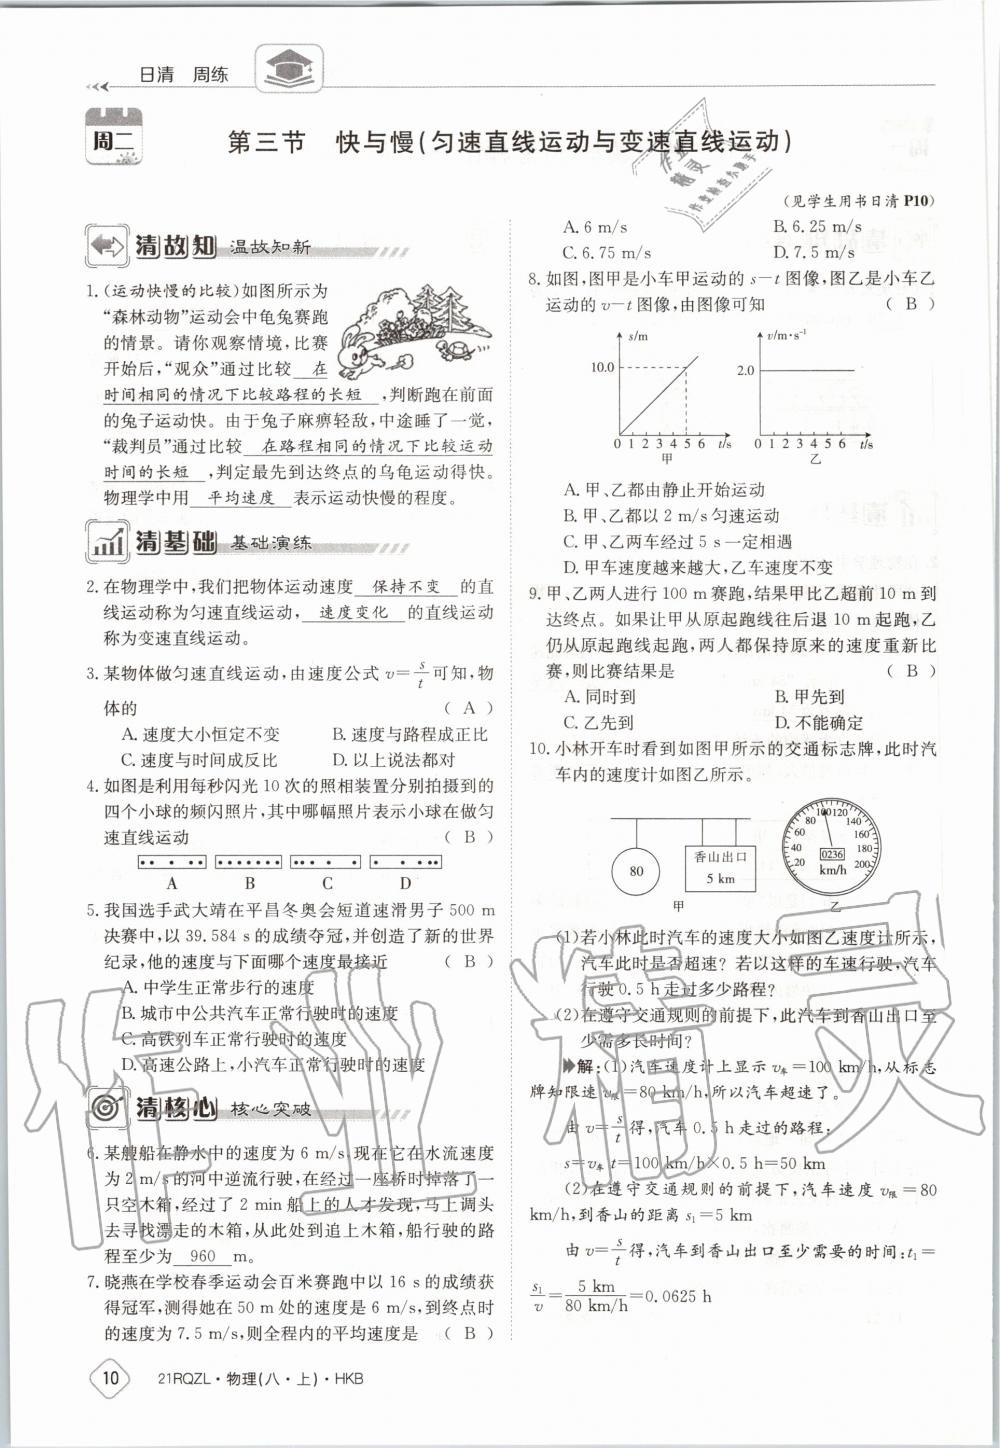 日清 周练
周二
第三节 快与慢(匀速直线运动与变速直线运动)
(见学生用书日清P10)
清故知 温故知新
1.(运动快慢的比较)如图所示为
“森林动物”运动会中龟兔赛跑
的情景。请你观察情境,比赛
开始后,“观众”通过比较 在
时间相同的情况下比较路程的长短 ,判断跑在前面
的兔子运动快。由于兔子麻痹轻敌,中途睡了一觉,
“裁判员”通过比较 在路程相同的情况下比较运动
时间的长短 ,判定最先到达终点的乌龟运动得快。
物理学中用 平均速度 表示运动快慢的程度。
清基础 基础演练
2.在物理学中,我们把物体运动速度 保持不变 的直
线运动称为匀速直线运动, 速度变化 的直线运动
称为变速直线运动。
3.某物体做匀速直线运动,由速度公式 v=s/t可知,物
体的 ( A )
A.速度大小恒定不变 B.速度与路程成正比
C.速度与时间成反比 D.以上说法都对
4.如图是利用每秒闪光 10 次的照相装置分别拍摄到的
四个小球的频闪照片,其中哪幅照片表示小球在做匀
速直线运动 ( B )
A B C D
5.我国选手武大靖在平昌冬奥会短道速滑男子 500 m
决赛中,以 39.584 s的成绩夺冠,并创造了新的世界
纪录,他的速度与下面哪个速度最接近 ( B )
A.中学生正常步行的速度
B.城市中公共汽车正常行驶时的速度
C.高铁列车正常行驶时的速度
D.高速公路上,小汽车正常行驶时的速度
清核心 核心突破
6.某艘船在静水中的速度为 6 m/s,现在它在水流速度
为 2 m/s的河中逆流行驶,在经过一座桥时掉落了一
只空木箱,经过了 2 min 船上的人才发现,马上调头
去寻找漂走的木箱,从此处到追上木箱,船行驶的路
程至少为 960 m。
7.晓燕在学校春季运动会百米赛跑中以 16 s 的成绩获
得冠军,测得她在 50 m 处的速度是 6 m/s,到终点时
的速度为 7.5 m/s,则全程内的平均速度是 ( B )
A.6 m/s B.6.25 m/s
C.6.75 m/s D.7.5 m/s
8.如图,图甲是小车甲运动的 s-t 图像,图乙是小车乙
运动的 v-t 图像,由图像可知 ( B )
s/m
10.0
0 1 2 3 4 5 6 t/s
甲
v/m·s⁻¹
2.0
0 1 2 3 4 5 6 t/s
乙
A.甲、乙都由静止开始运动
B.甲、乙都以 2 m/s匀速运动
C.甲、乙两车经过 5 s一定相遇
D.甲车速度越来越大,乙车速度不变
9.甲、乙两人进行 100 m赛跑,结果甲比乙超前 10 m到
达终点。如果让甲从原起跑线往后退 10 m起跑,乙
仍从原起跑线起跑,两人都保持原来的速度重新比
赛,则比赛结果是 ( B )
A.同时到 B.甲先到
C.乙先到 D.不能确定
10.小林开车时看到如图甲所示的交通标志牌,此时汽
车内的速度计如图乙所示。
80
香山出口
5 km
甲
20 40 60 80 100 120 140 160 180 200
0236
km/h
乙
(1)若小林此时汽车的速度大小如图乙速度计所示,
汽车此时是否超速?若以这样的车速行驶,汽车
行驶 0.5 h 走过多少路程?
(2)在遵守交通规则的前提下,此汽车到香山出口至
少需多长时间?
解:(1)汽车速度计上显示 v车=100 km/h,从标志
牌知限速 v限=80 km/h,所以汽车超速了。
由 v=s/t得,汽车 0.5 h走过的路程:
s=v车 t=100 km/h×0.5 h=50 km
(2)在遵守交通规则的前提下,汽车速度 v限=80
km/h,到香山的距离 s₁=5 km
由 v=s/t得,汽车到香山出口至少需要的时间:t₁=
s₁/v=5 km/80 km/h=0.0625 h
10 21RQZL·物理(八·上)·HKB
作业精灵
作业精灵
作业检查小助手